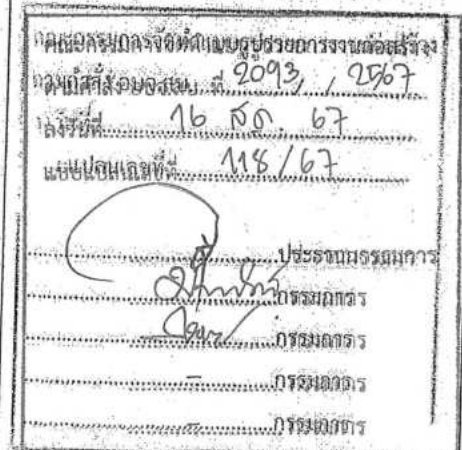 คณะกรรมการจัดทำแบบรูปรายการงานก่อสร้าง
ตามคำสั่ง อบจ.สบ. ที่ 2093 / 2567
ลงวันที่ 16 สค 67
แบบแปลนเลขที่ 118/67
ประธานกรรมการ
กรรมการ
กรรมการ
- กรรมการ
- กรรมการ